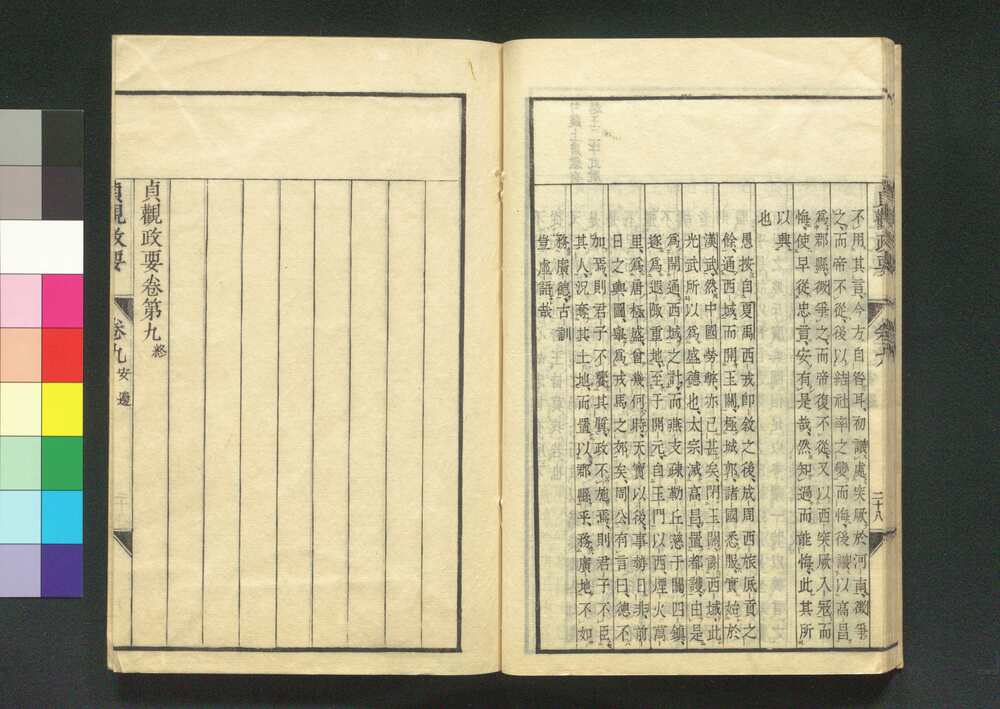 不用其言今方自咎耳初議處突厥於河南徵爭
之而帝不從後以結社率之變而悔後議以高昌
爲郡縣徵爭之而帝復不從又以西突厥入寇而
悔使早從忠言安有是哉然知過而能悔此其所
以興
也
愚按自夏禹西戎即敘之後成周西旅厎貢之
餘通西域而開玉關極城郭諸國悉服實始於
漢武然中國勞弊亦已甚矣閉玉關謝西域此
光武所以爲盛德也太宗滅高昌置都護由是
爲開通西域之計而燕支疎勒丘慈于闐四鎮
遂爲遐陬重地至于開元自玉門以西煙火萬
里爲唐極盛曾幾何時天寶以後事勢日非前
日之輿圖舉爲戎馬之郊矣周公有言曰德不
加焉則君子不饗其質政不施焉則君子不臣
其人況奪其土地而置以郡縣乎務廣地不如
務廣德古訓
豈虛語哉
二十八
貞觀政要卷第九終
貞觀政要
卷九
安邊